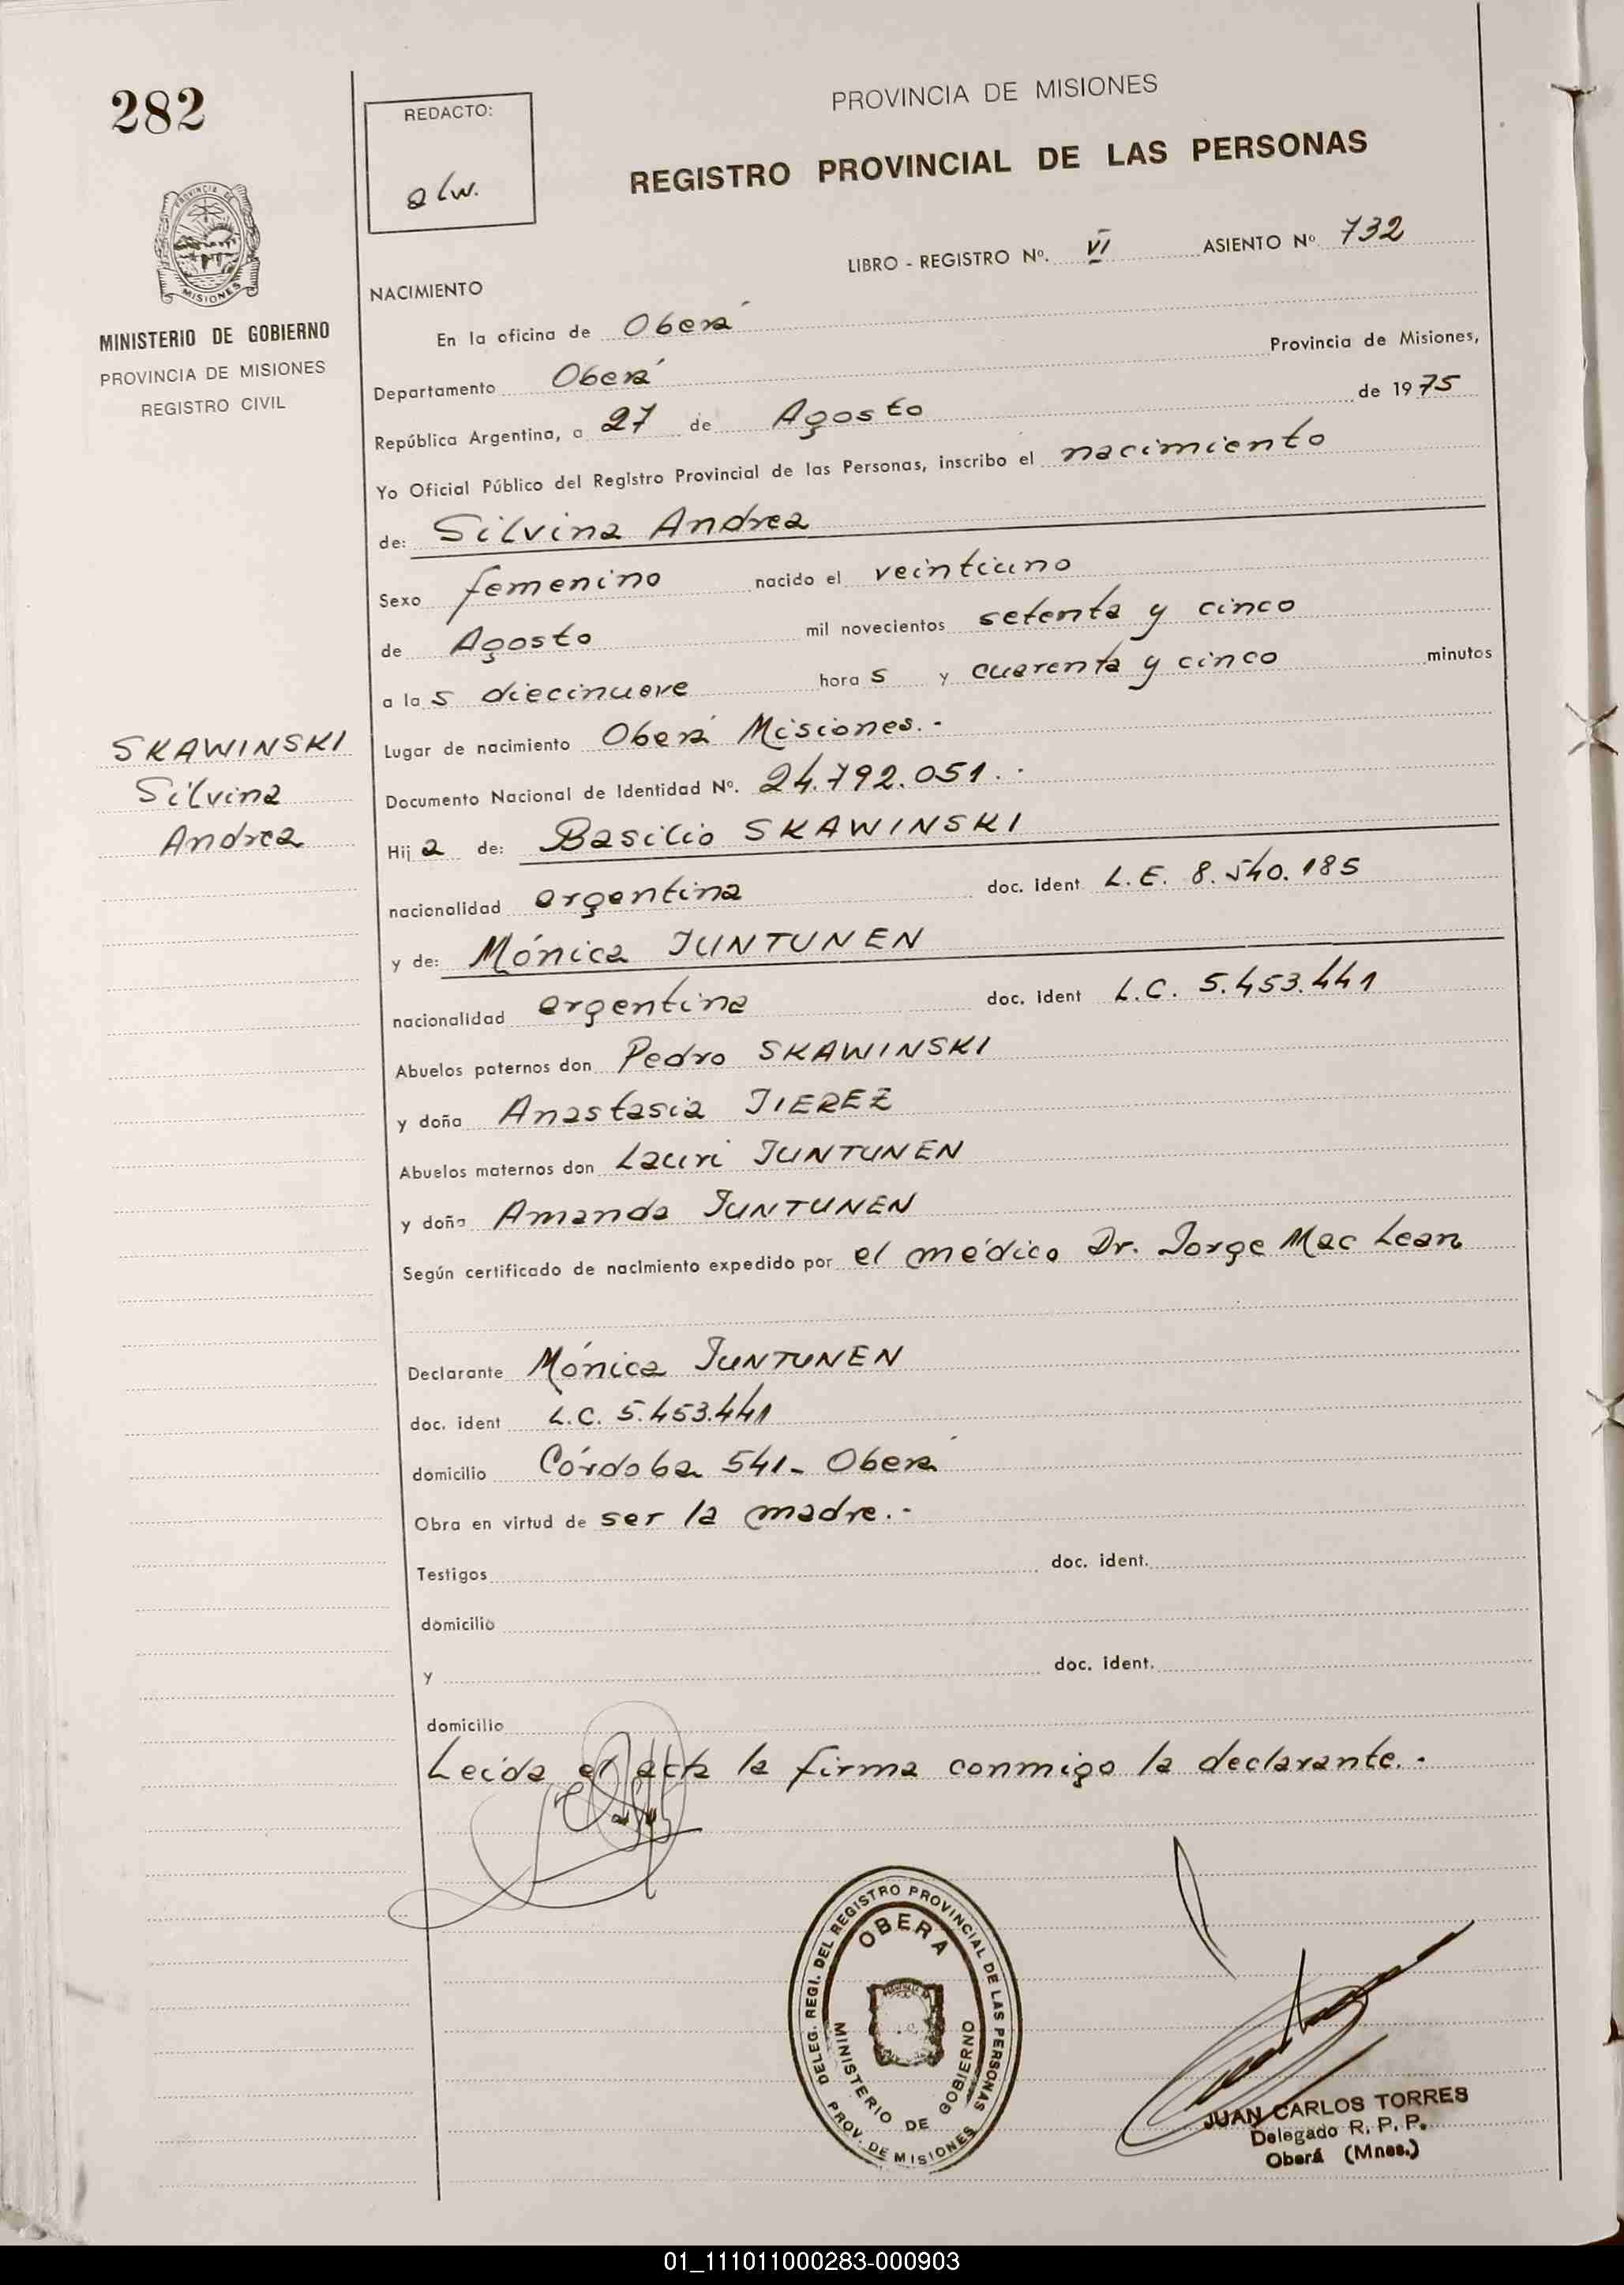 282
REDACTO:
alw.
PROVINCIA DE MISIONES
REGISTRO PROVINCIAL DE LAS PERSONAS
LIBRO - REGISTRO Nº. VI ASIENTO Nº 732
PROVINCIA DE
MISIONES
MINISTERIO DE GOBIERNO
PROVINCIA DE MISIONES
REGISTRO CIVIL
NACIMIENTO
En la oficina de Oberá
Departamento Oberá Provincia de Misiones,
República Argentina, a 27 de Agosto de 1975
Yo Oficial Público del Registro Provincial de las Personas, inscribo el nacimiento
de: Silvina Andrea
Sexo femenino nacido el veintiuno
de Agosto mil novecientos setenta y cinco
a las diecinueve horas y cuarenta y cinco minutos
SKAWINSKI
Silvina
Andrea
Lugar de nacimiento Oberá Misiones.-
Documento Nacional de Identidad Nº. 24.792.051.-
Hija de: Basilio SKAWINSKI
nacionalidad argentina doc. ident L.E. 8.540.185
y de: Mónica JUNTUNEN
nacionalidad argentina doc. ident L.C. 5.453.441
Abuelos paternos don Pedro SKAWINSKI
y doña Anastasia JIEREZ
Abuelos maternos don Lauri JUNTUNEN
y doña Amanda JUNTUNEN
Según certificado de nacimiento expedido por el médico Dr. Jorge Mac Lean
Declarante Mónica JUNTUNEN
doc. ident L.C. 5.453.441
domicilio Córdoba 541- Oberá
Obra en virtud de ser la madre.-
Testigos doc. ident.
domicilio
y doc. ident.
domicilio
Leida el acta la firma conmigo la declarante.-
DELEG. REGI. DEL REGISTRO PROVINCIAL DE LAS PERSONAS
OBERA
MINISTERIO DE GOBIERNO
PROV. DE MISIONES
JUAN CARLOS TORRES
Delegado R. P. P.
Oberá (Mnes.)
01_111011000283-000903